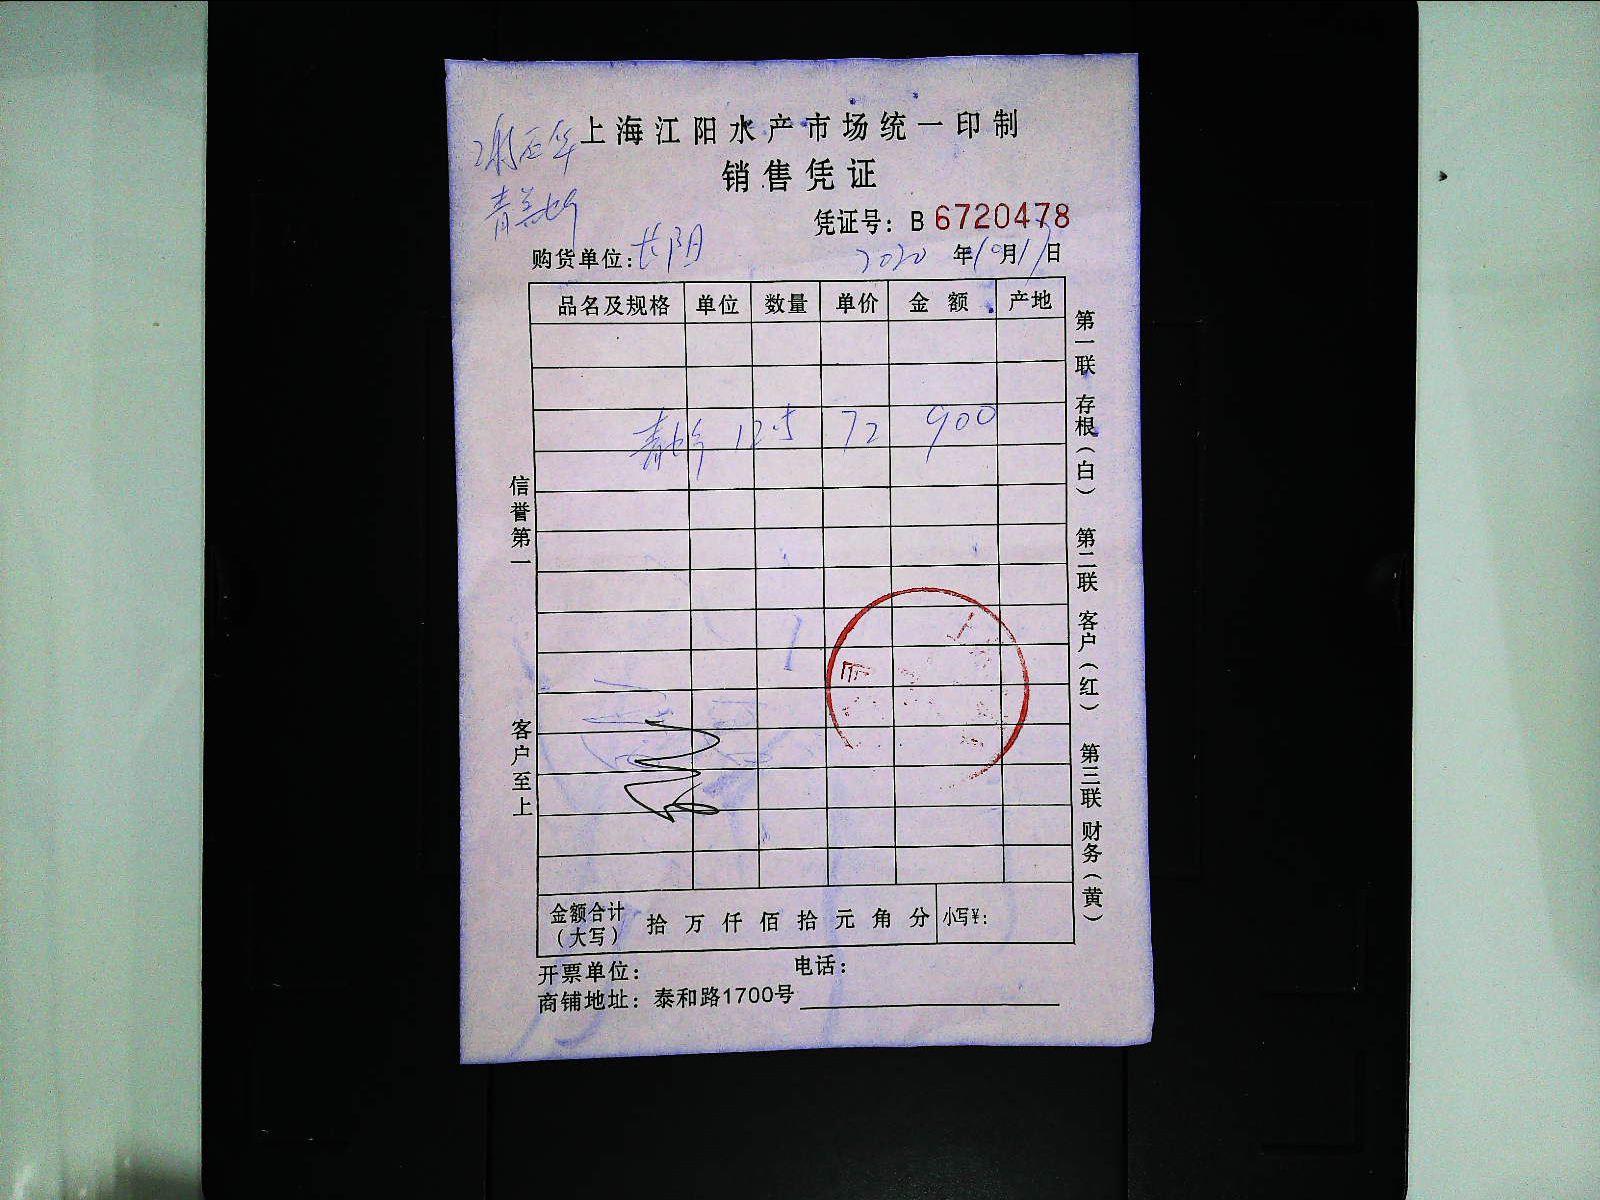 上海江阳水产市场统一印制
销售凭证
凭证号：B 6720478
购货单位：长阳 2020 年10月17日
品名及规格 单位 数量 单价 金额 产地
12.5 72 900
信誉第一
客户至上
第一联 存根（白） 第二联 客户（红） 第三联 财务（黄）
金额合计（大写） 拾 万 仟 佰 拾 元 角 分 小写¥：
开票单位： 电话：
商铺地址：泰和路1700号